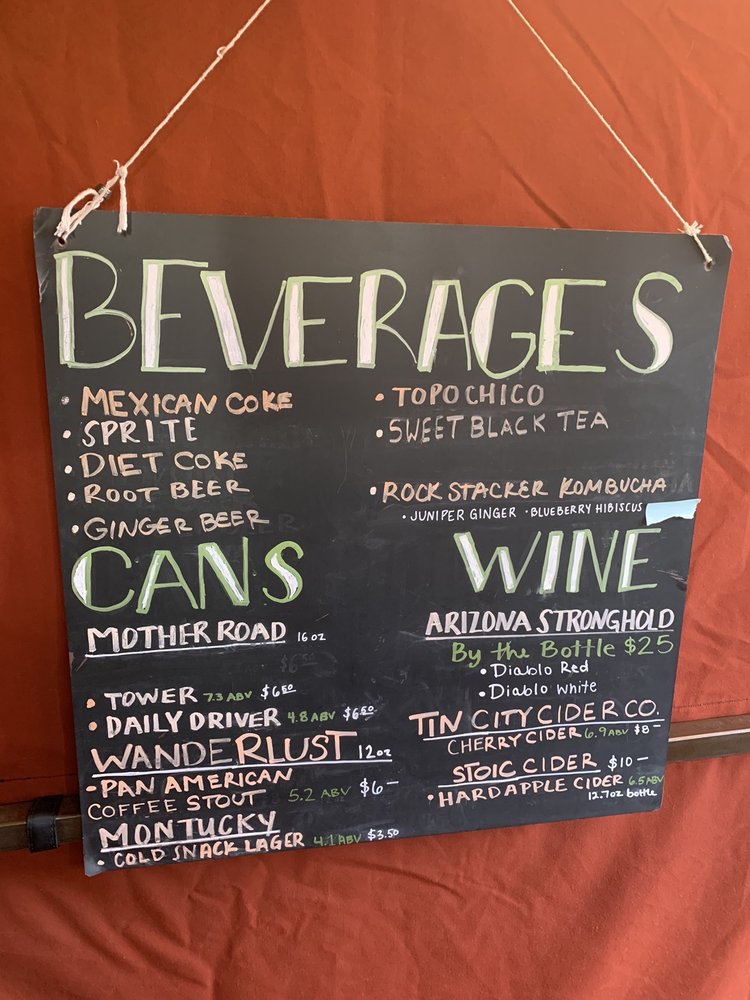 BEVERAGES
• MEXICAN COKE
• SPRITE
• DIET COKE
• ROOT BEER
• GINGER BEER
• TOPO CHICO
• SWEET BLACK TEA
• ROCK STACKER KOMBUCHA
• JUNIPER GINGER • BLUEBERRY HIBISCUS
CANS
MOTHER ROAD 16 oz
• TOWER 7.3 ABV $6.50
• DAILY DRIVER 4.8 ABV $6.50
WANDERLUST 12oz
• PAN AMERICAN
COFFEE STOUT 5.2 ABV $6—
MONTUCKY
• COLD SNACK LAGER 4.1 ABV $3.50
WINE
ARIZONA STRONGHOLD
By the Bottle $25
• Diablo Red
• Diablo White
TIN CITY CIDER CO.
CHERRY CIDER 6.9 ABV $8—
STOIC CIDER $10—
• HARD APPLE CIDER 6.5 ABV
12.7oz bottle